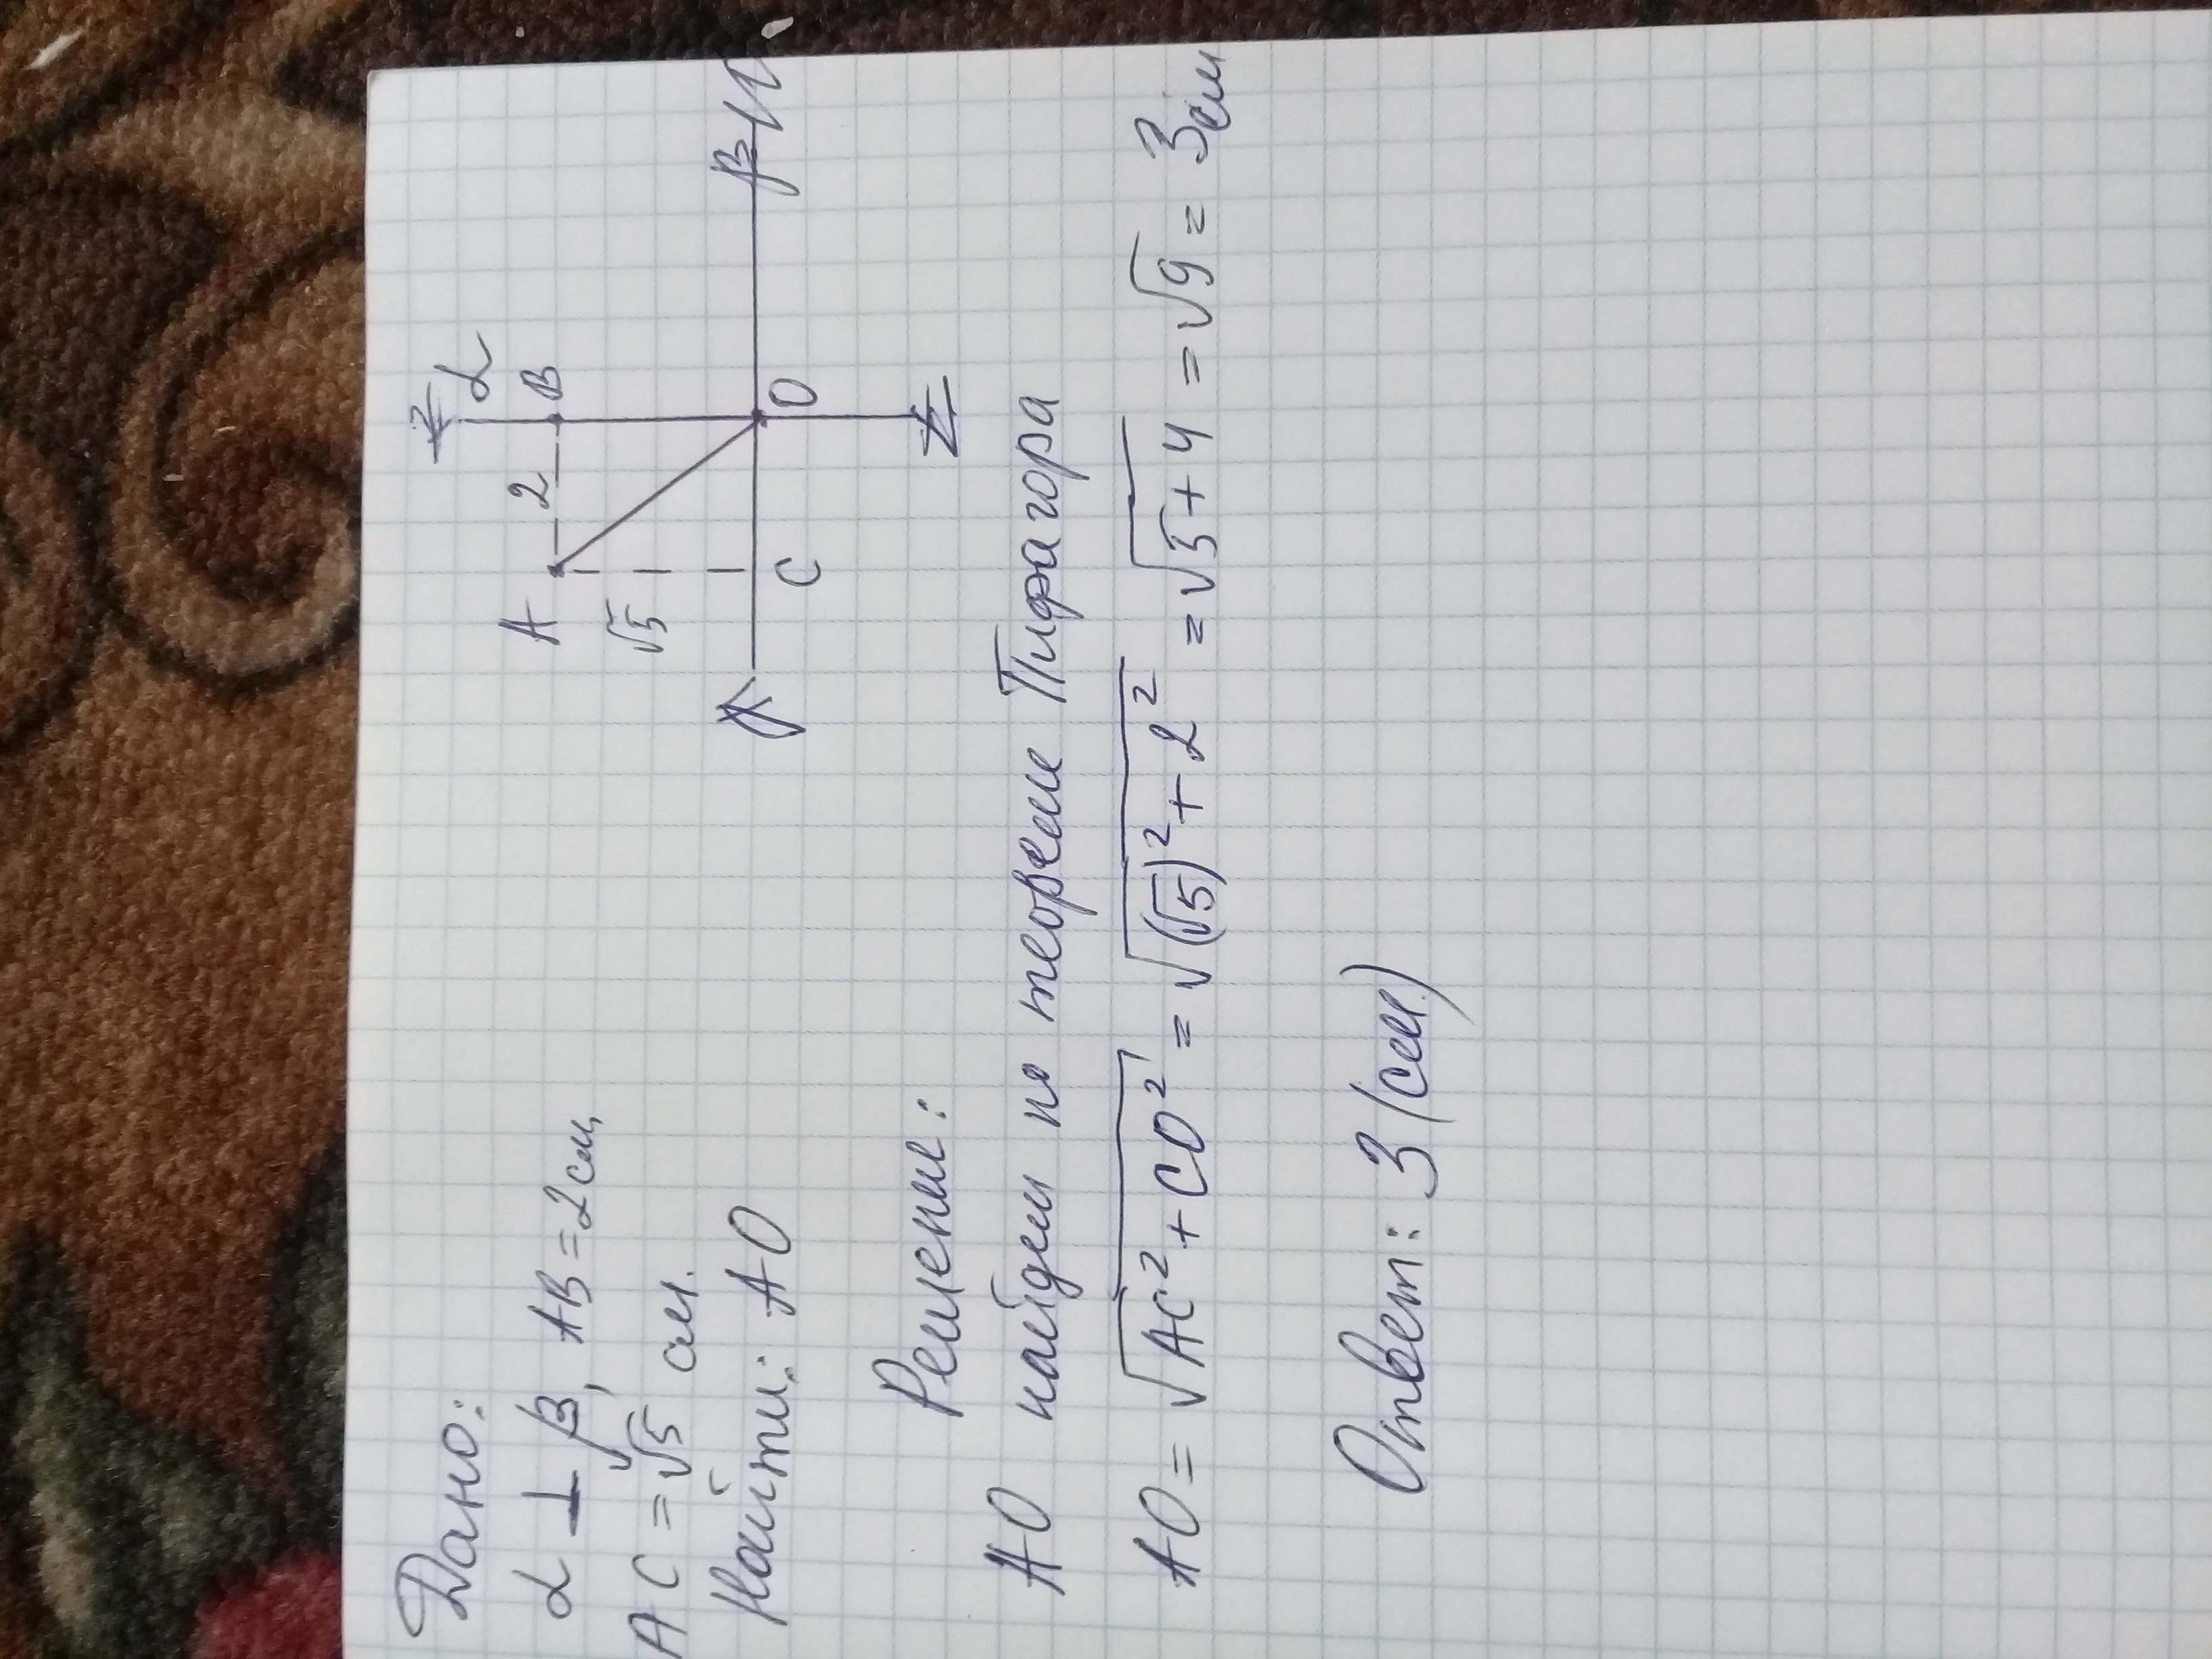 Дано:
α ⊥ β, AB = 2 см,
AC = √5 см.
Найти: AO
α
A 2 B
√5
C O β
Решение:
AO найдем по теореме Пифагора
AO = √AC² + CO² = √(√5)² + 2² = √5 + 4 = √9 = 3 см
Ответ: 3 (см)